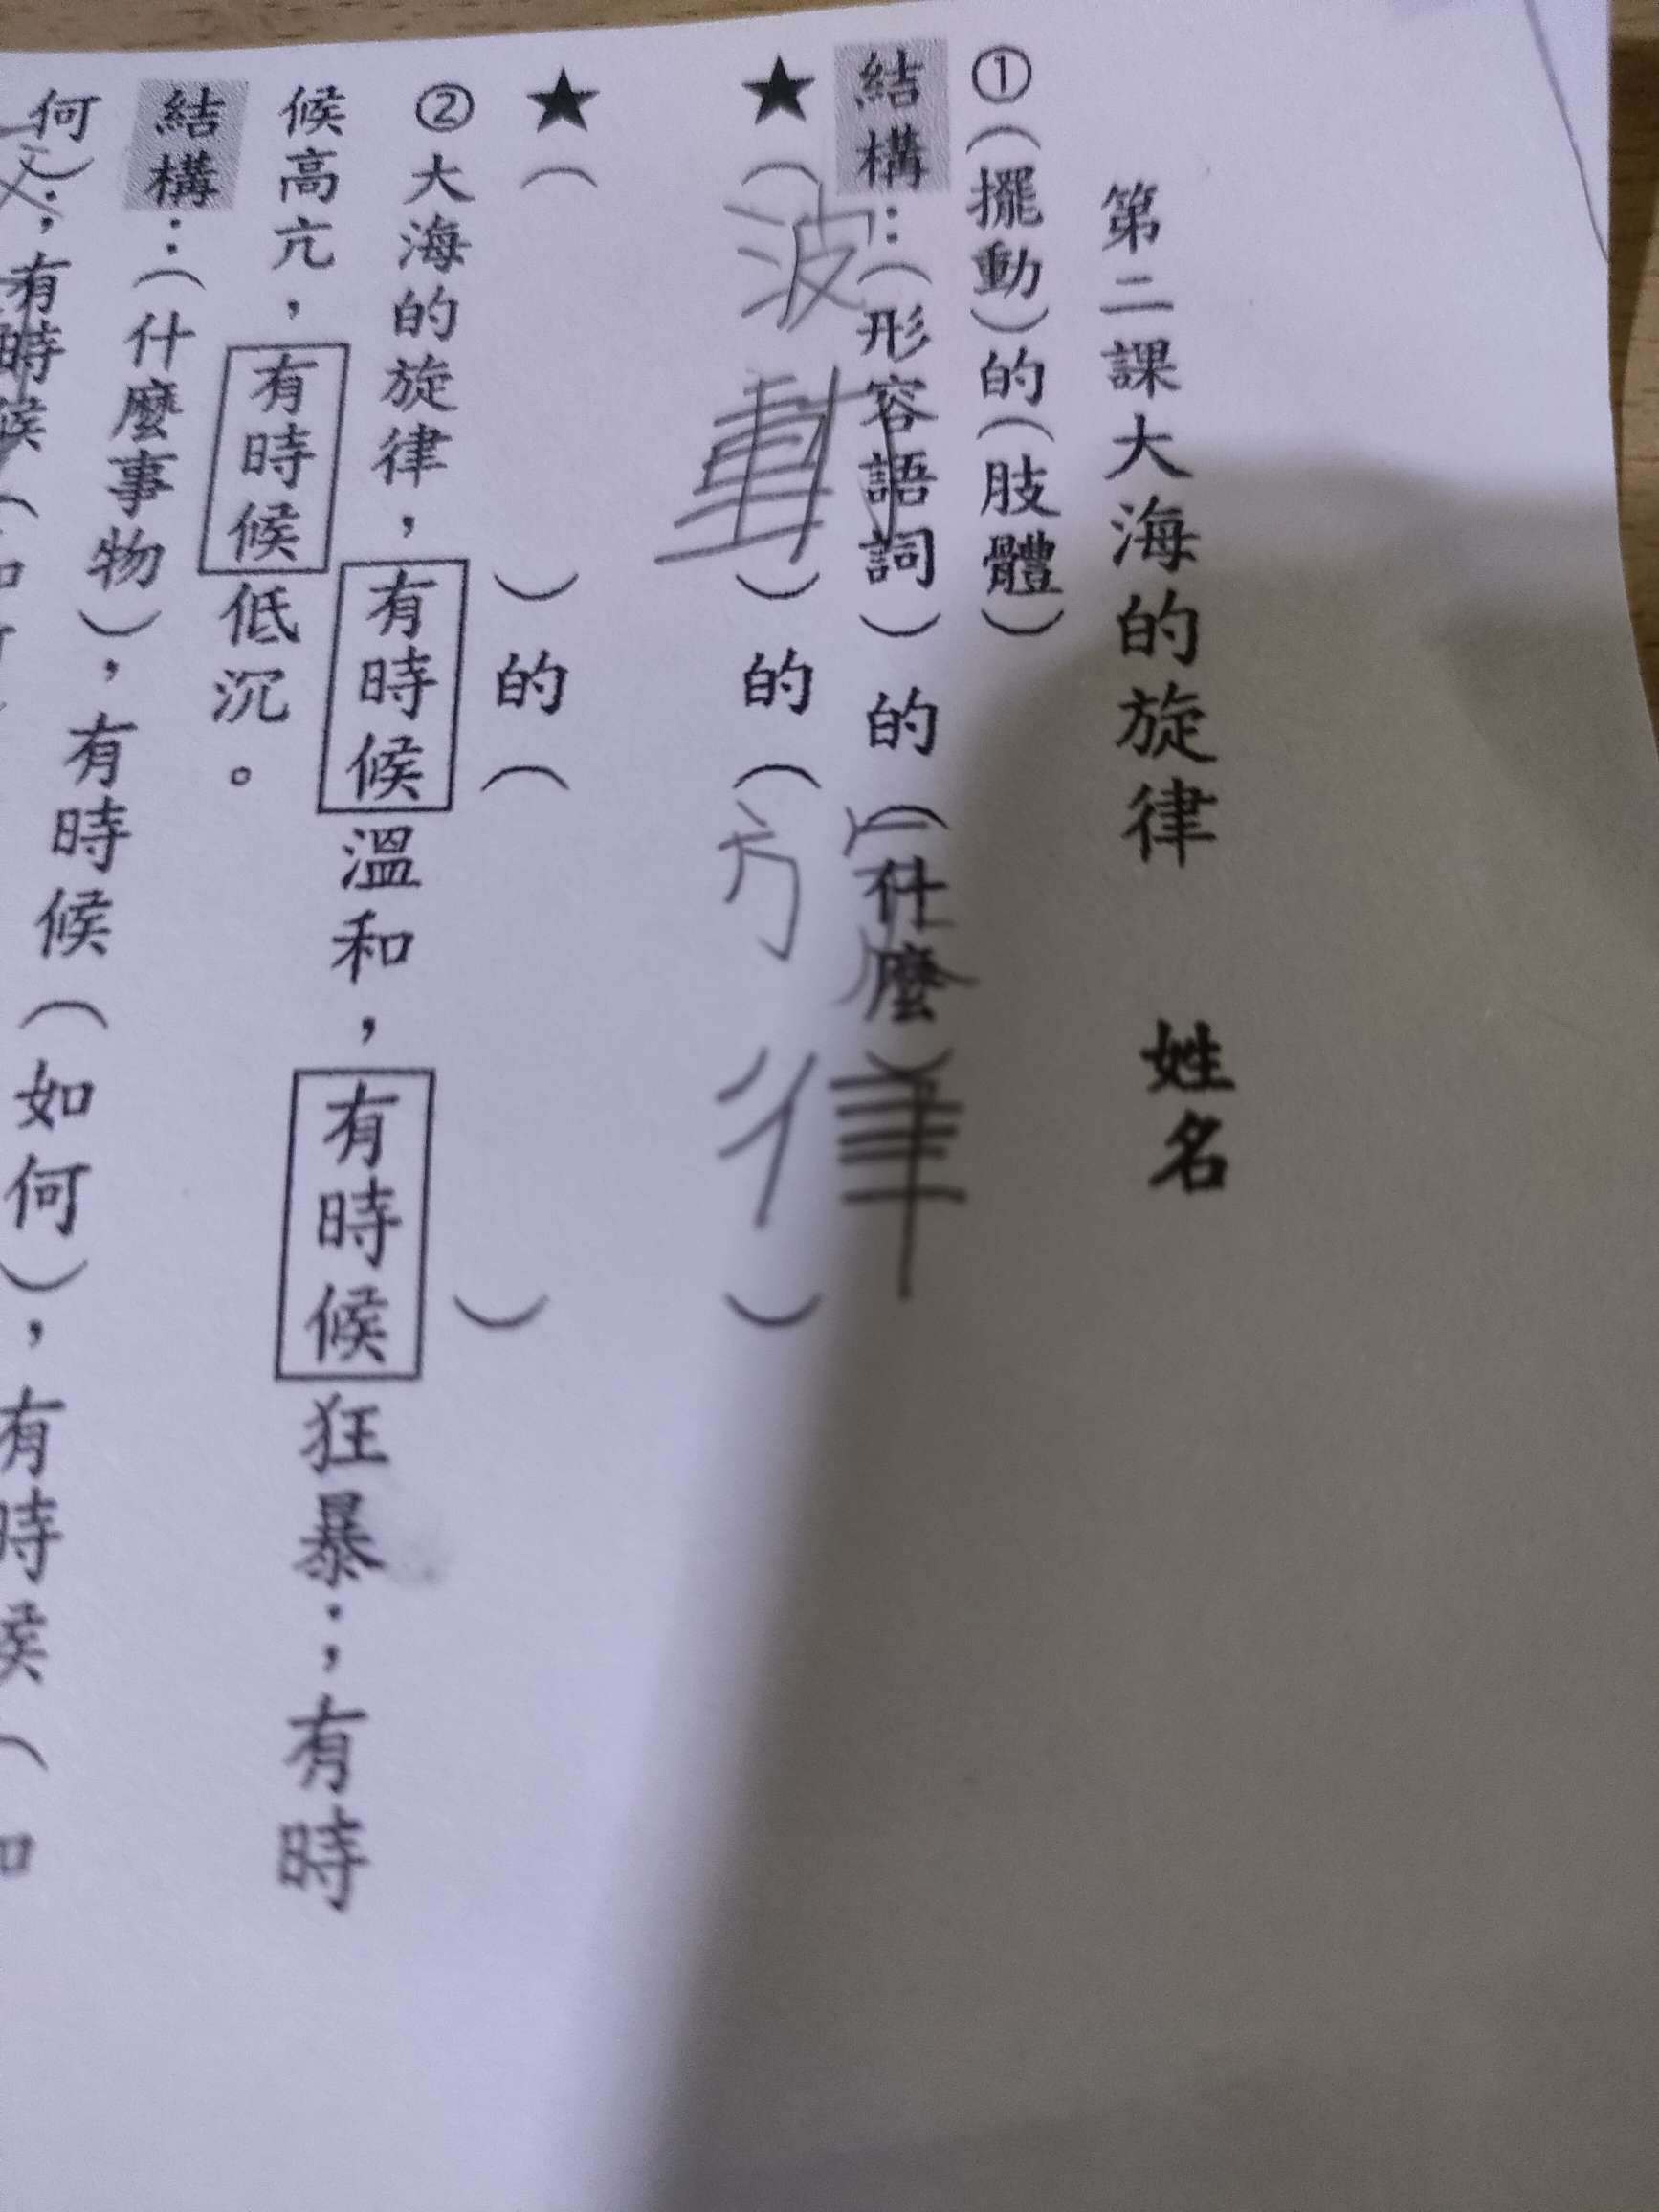 第二課大海的旋律　姓名
①(擺動)的(肢體)
結構：(形容語詞)的(什麼)
★(波動)的(旋律)
★(　)的(　)
②大海的旋律，有時候溫和，有時候狂暴；有時
候高亢，有時候低沉。
結構：(什麼事物)，有時候(如何)，有時候(如
何)；有時候(如